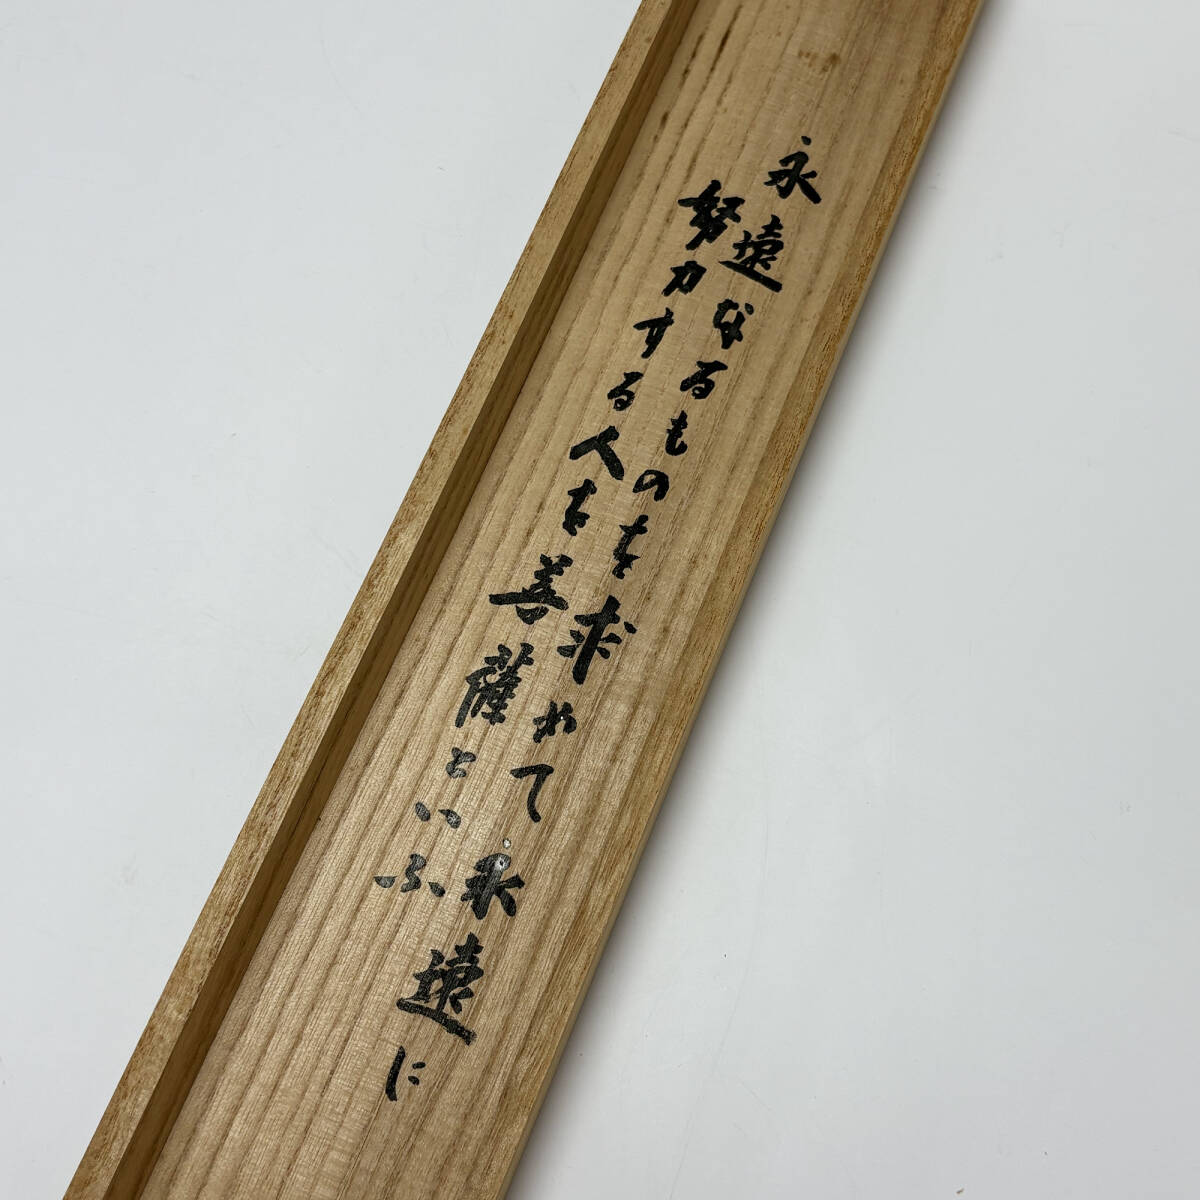 永遠なるものを求めて永遠に
努力する人を菩薩といふ